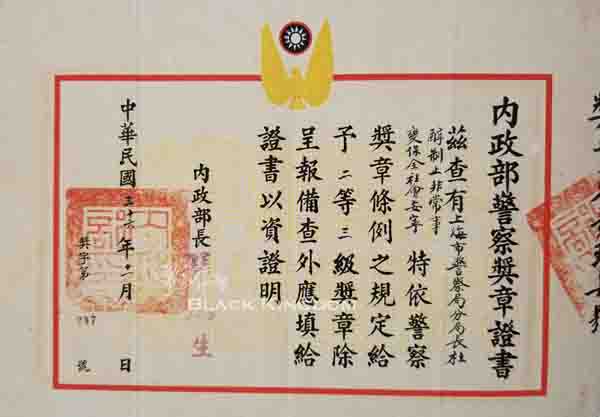 內政部警察獎章證書
茲查有上海市警察局分局長杜
制止非常事
變保全社會安寧
特依警察
獎章條例之規定給
予二等三級獎章除
呈報備查外應填給
證書以資證明
內政部長
生
中華民國三十六年十一月 日
獎字第
號
BLACK KINGDOM